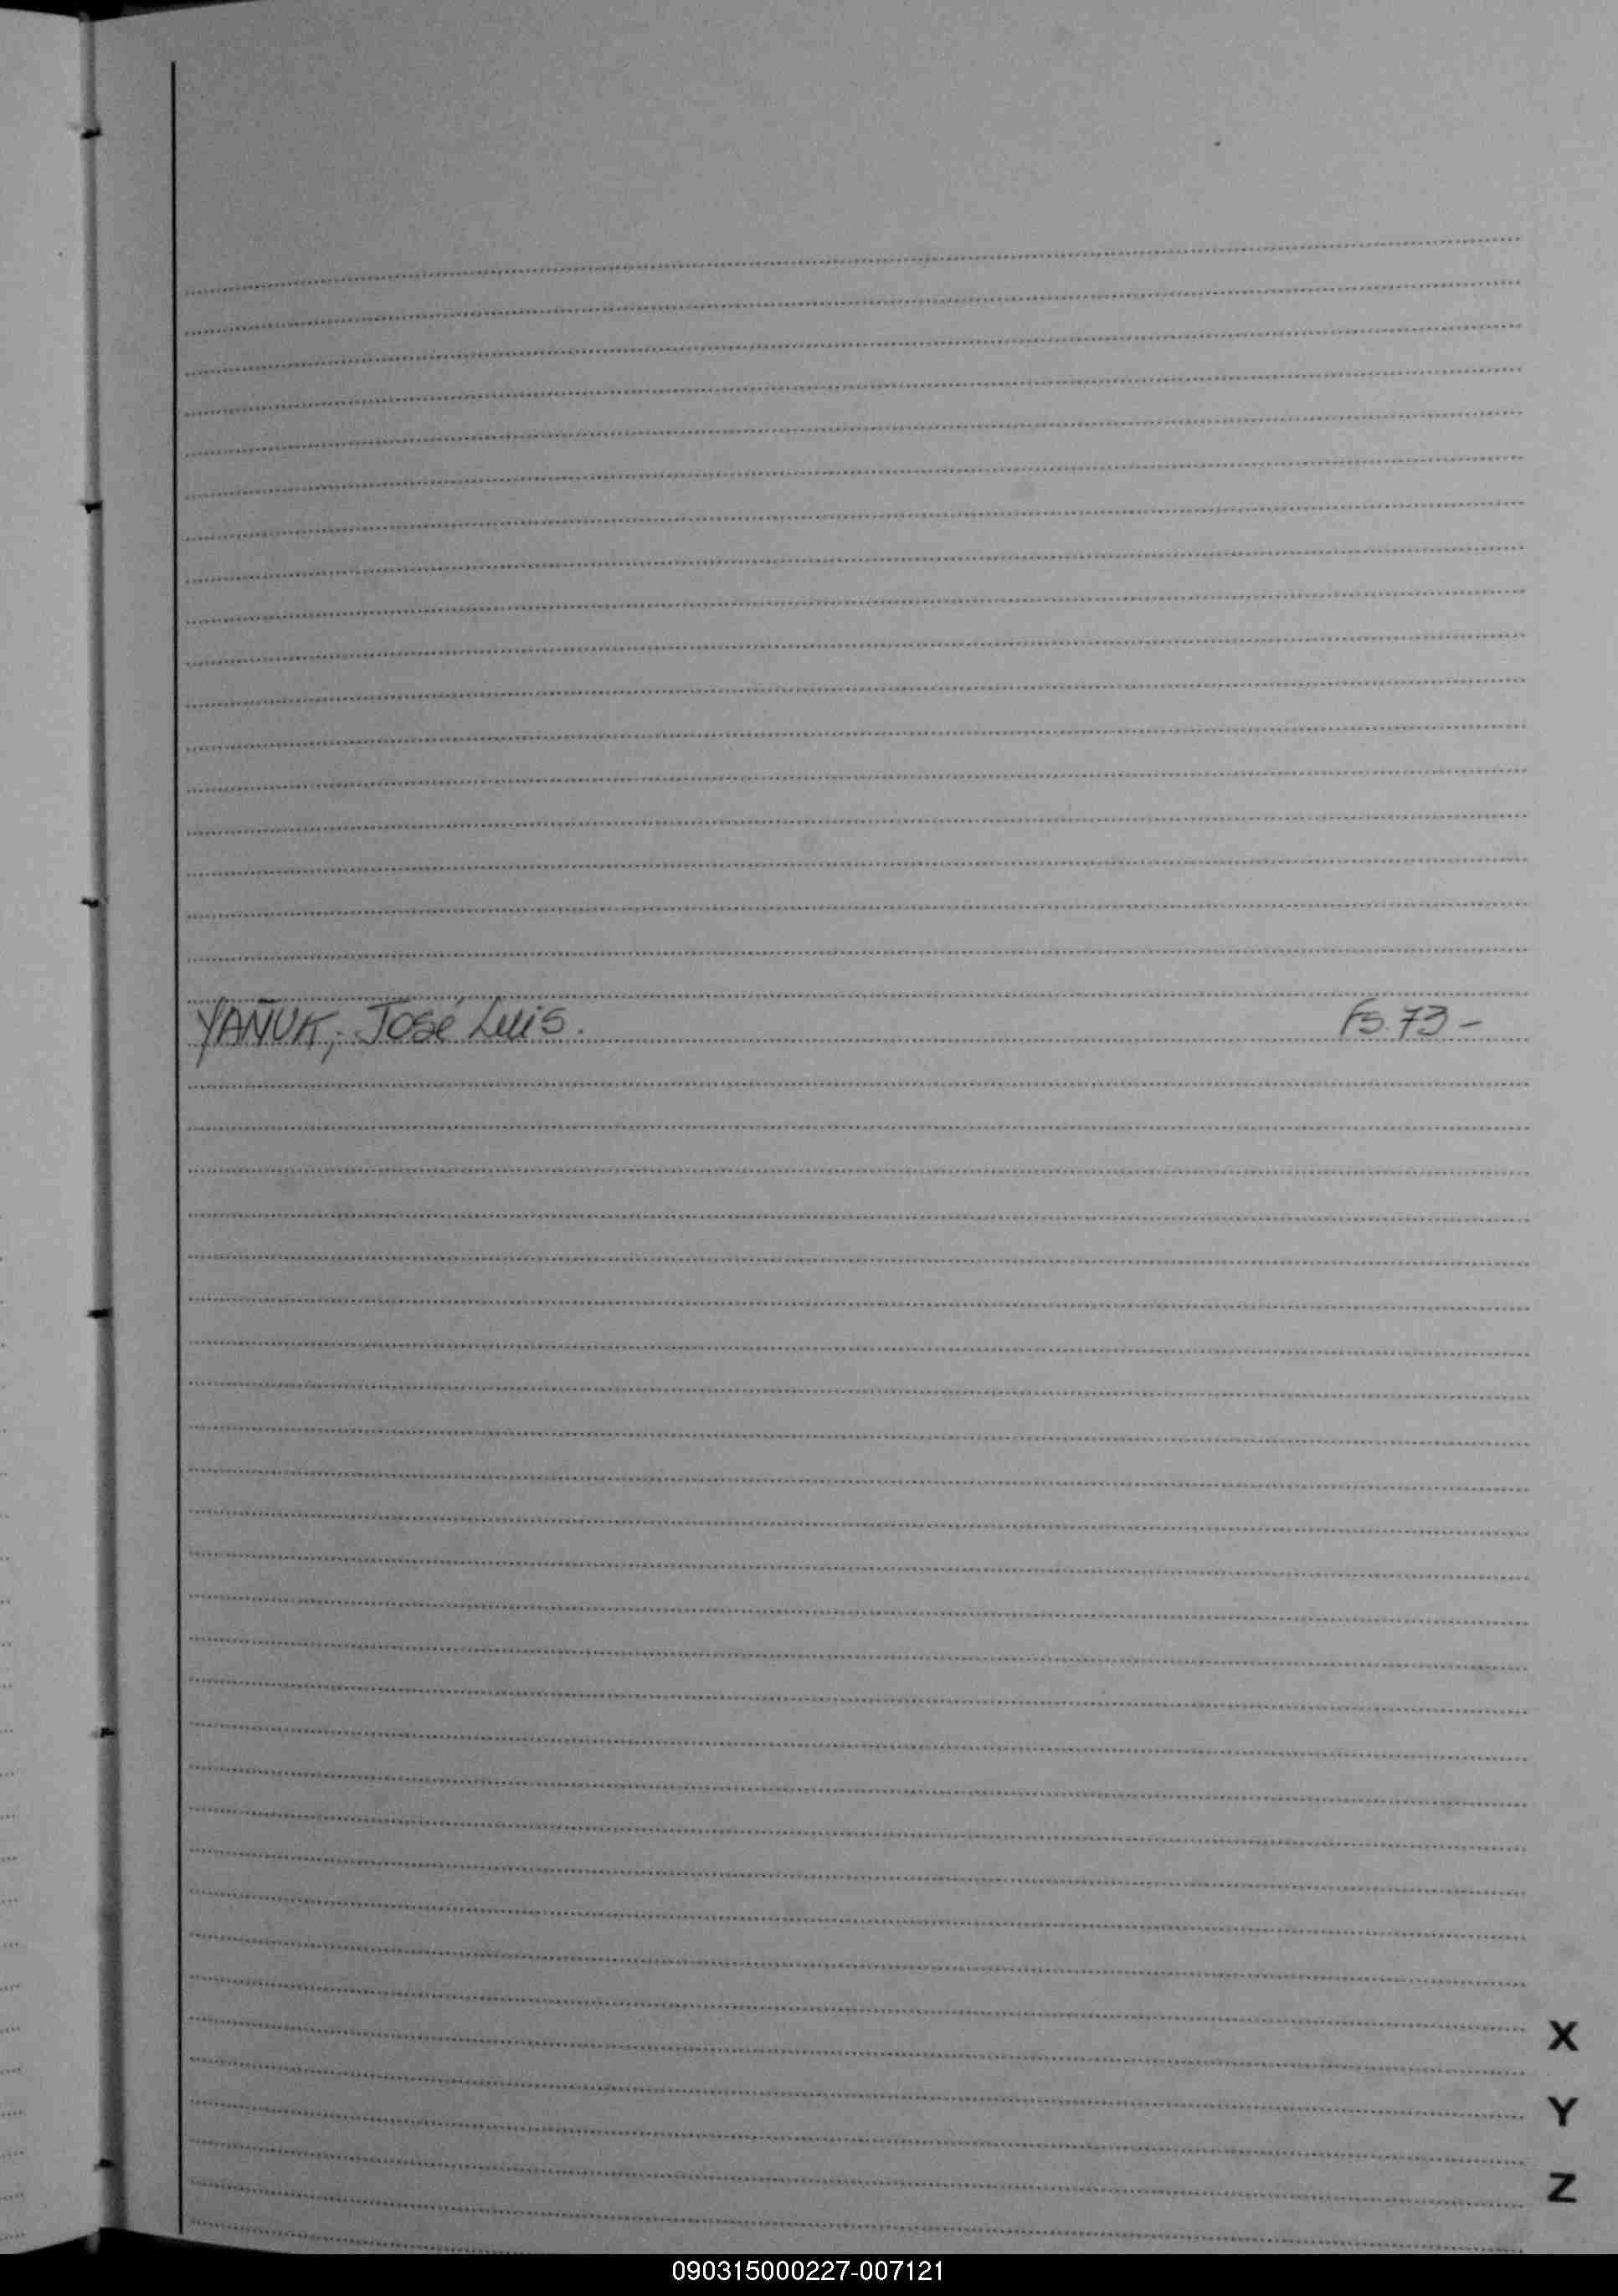 YAÑUK, José Luis.
Fs. 73 -
X
Y
Z
090315000227-007121